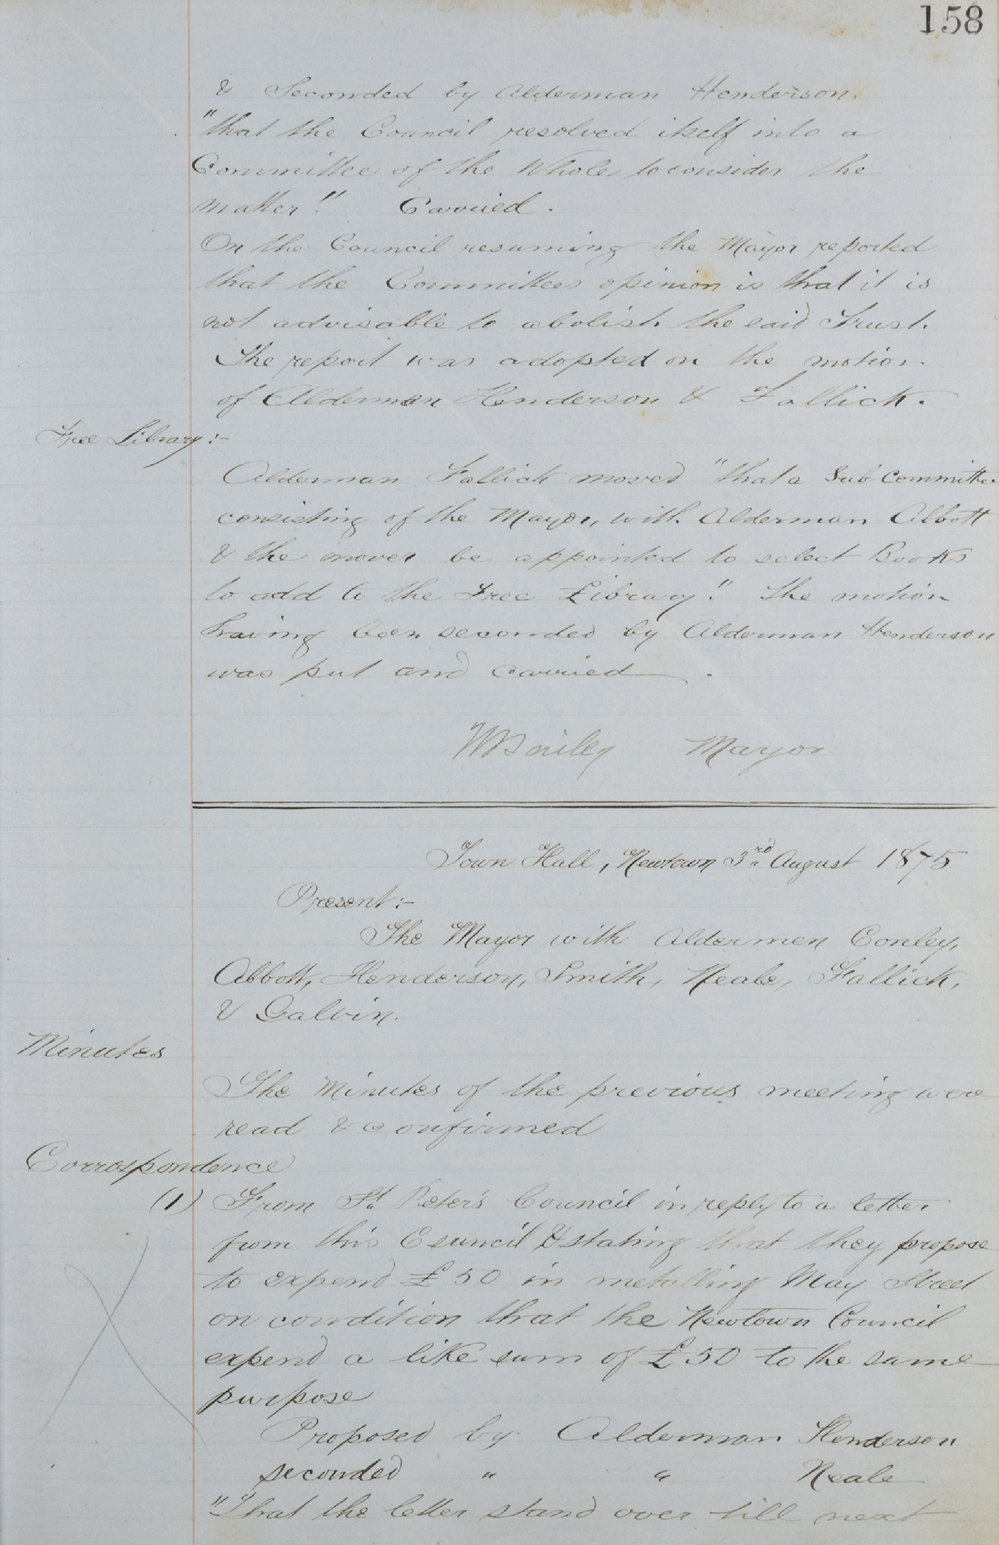 158
& Seconded by Alderman Henderson.
"that the Council resolved itself into a
Committee of the Whole to consider the
matter." Carried.
On the Council resuming the Mayor reported
that the Committees opinion is that it is
not advisable to abolish the said Trust.
The report was adopted on the motion
of Aldermen Henderson & Fallick.
Free Library:-
Alderman Fallick moved "that a Sub Committee
consisting of the Mayor, with Alderman Abbott
& the mover be appointed to select Books
to add to the Free Library." The motion
having been seconded by Alderman Henderson
was put and carried.
WBailey Mayor
Town Hall, Newtown 3rd August 1875
Present:-
The Mayor with Aldermen Conley,
Abbott, Henderson, Smith, Neale, Fallick,
& Galvin.
Minutes
The Minutes of the previous meeting were
read & confirmed
Corrospondence
(1) From St Peter's Council in reply to a letter
from this Council & stating that they propose
to expend £50 in metalling May Street
on condition that the Newtown Council
expend a like sum of £50 to the same
purpose
Proposed by Alderman Henderson
seconded " " Neale
"That the letter stand over till next